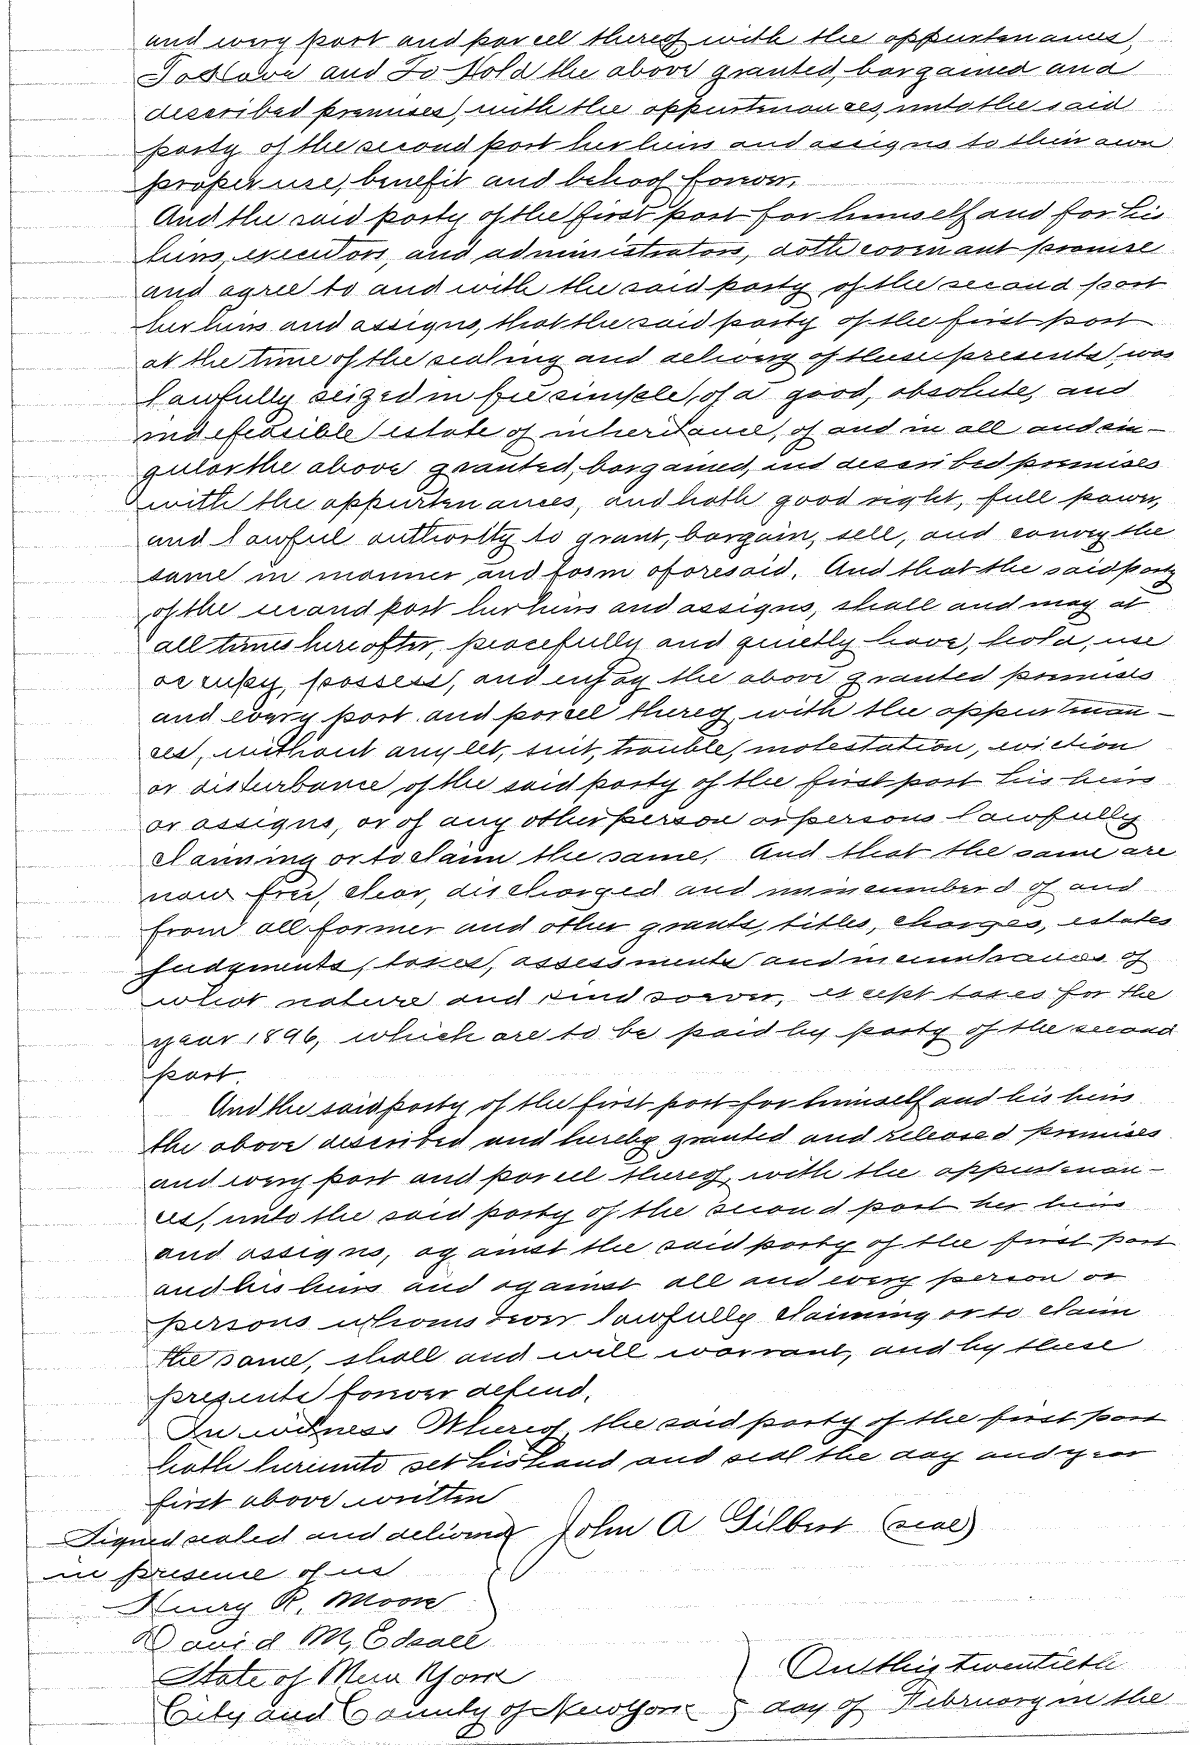 and every part and parcel thereof with the appurtenances,
To Have and To Hold the above granted, bargained and
described premises, with the appurtenances, unto the said
party of the second part her heirs and assigns to their own
proper use, benefit and behoof forever.
And the said party of the first part for himself and for his
heirs, executors, and administrators, doth covenant promise
and agree to and with the said party of the second part
her heirs and assigns, that the said party of the first part
at the time of the sealing and delivery of these presents, was
lawfully seized in fee simple, of a good, absolute, and
indefeasible estate of inheritance, of and in all and sin-
gular the above granted, bargained, and described premises
with the appurtenances, and hath good right, full power,
and lawful authority to grant, bargain, sell, and convey the
same in manner and form aforesaid. And that the said party
of the second part her heirs and assigns, shall and may at
all times hereafter, peacefully and quietly have, hold, use
occupy, possess, and enjoy the above granted premises
and every part and parcel thereof, with the appurtenan-
ces, without any let, suit, trouble, molestation, eviction
or disturbance of the said party of the first part his heirs
or assigns, or of any other person or persons lawfully
claiming or to claim the same. And that the same are
now free, clear, discharged and unincumberd of and
from all former and other grants, titles, charges, estates
judgments, taxes, assessments and incumbrances of
what nature and kind soever, except taxes for the
year 1896, which are to be paid by party of the second
part.
And the said party of the first part for himself and his heirs
the above described and hereby granted and released premises
and every part and parcel thereof, with the appurtenan-
ces, unto the said party of the second part her heirs
and assigns, against the said party of the first part
and his heirs and against all and every person or
persons whomsoever lawfully claiming or to claim
the same, shall and will warrant, and by these
presents forever defend.
In witness Whereof, the said party of the first part
hath hereunto set his hand and seal the day and year
first above written
Signed sealed and delivered John A Gilbert (seal)
in presence of us
Henry R. Moore
David M, Edsall
State of New York On this twentieth
City and County of New York day of February in the